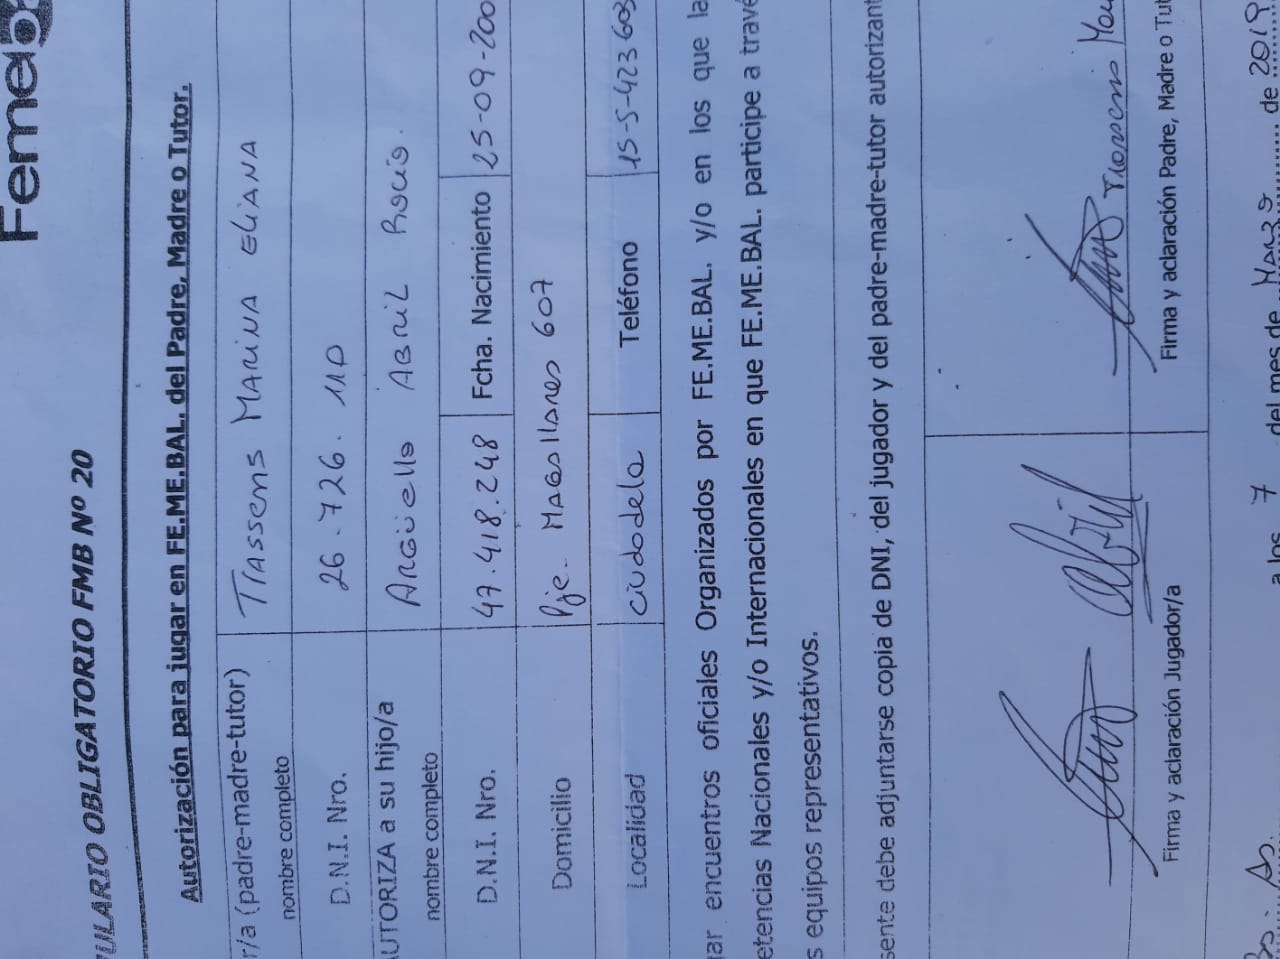 Femeba
ULARIO OBLIGATORIO FMB Nº 20
Autorización para jugar en FE.ME.BAL. del Padre, Madre o Tutor.
r/a (padre-madre-tutor) nombre completo TIASSENS MARINA ELIANA
D.N.I. Nro. 26.726.110
UTORIZA a su hijo/a nombre completo ARGÜELLO ABRIL ROCIO.
D.N.I. Nro. 47.418.248 Fcha. Nacimiento 25-09-200
Domicilio Pje. MAGALLANES 607
Localidad ciudadela Teléfono 15-5-423 603
ar encuentros oficiales Organizados por FE.ME.BAL. y/o en los que la
etencias Nacionales y/o Internacionales en que FE.ME.BAL. participe a travé
s equipos representativos.
sente debe adjuntarse copia de DNI, del jugador y del padre-madre-tutor autorizant
Abril
Firma y aclaración Jugador/a Firma y aclaración Padre, Madre o Tut
a los 7 del mes de MARZO de 2019